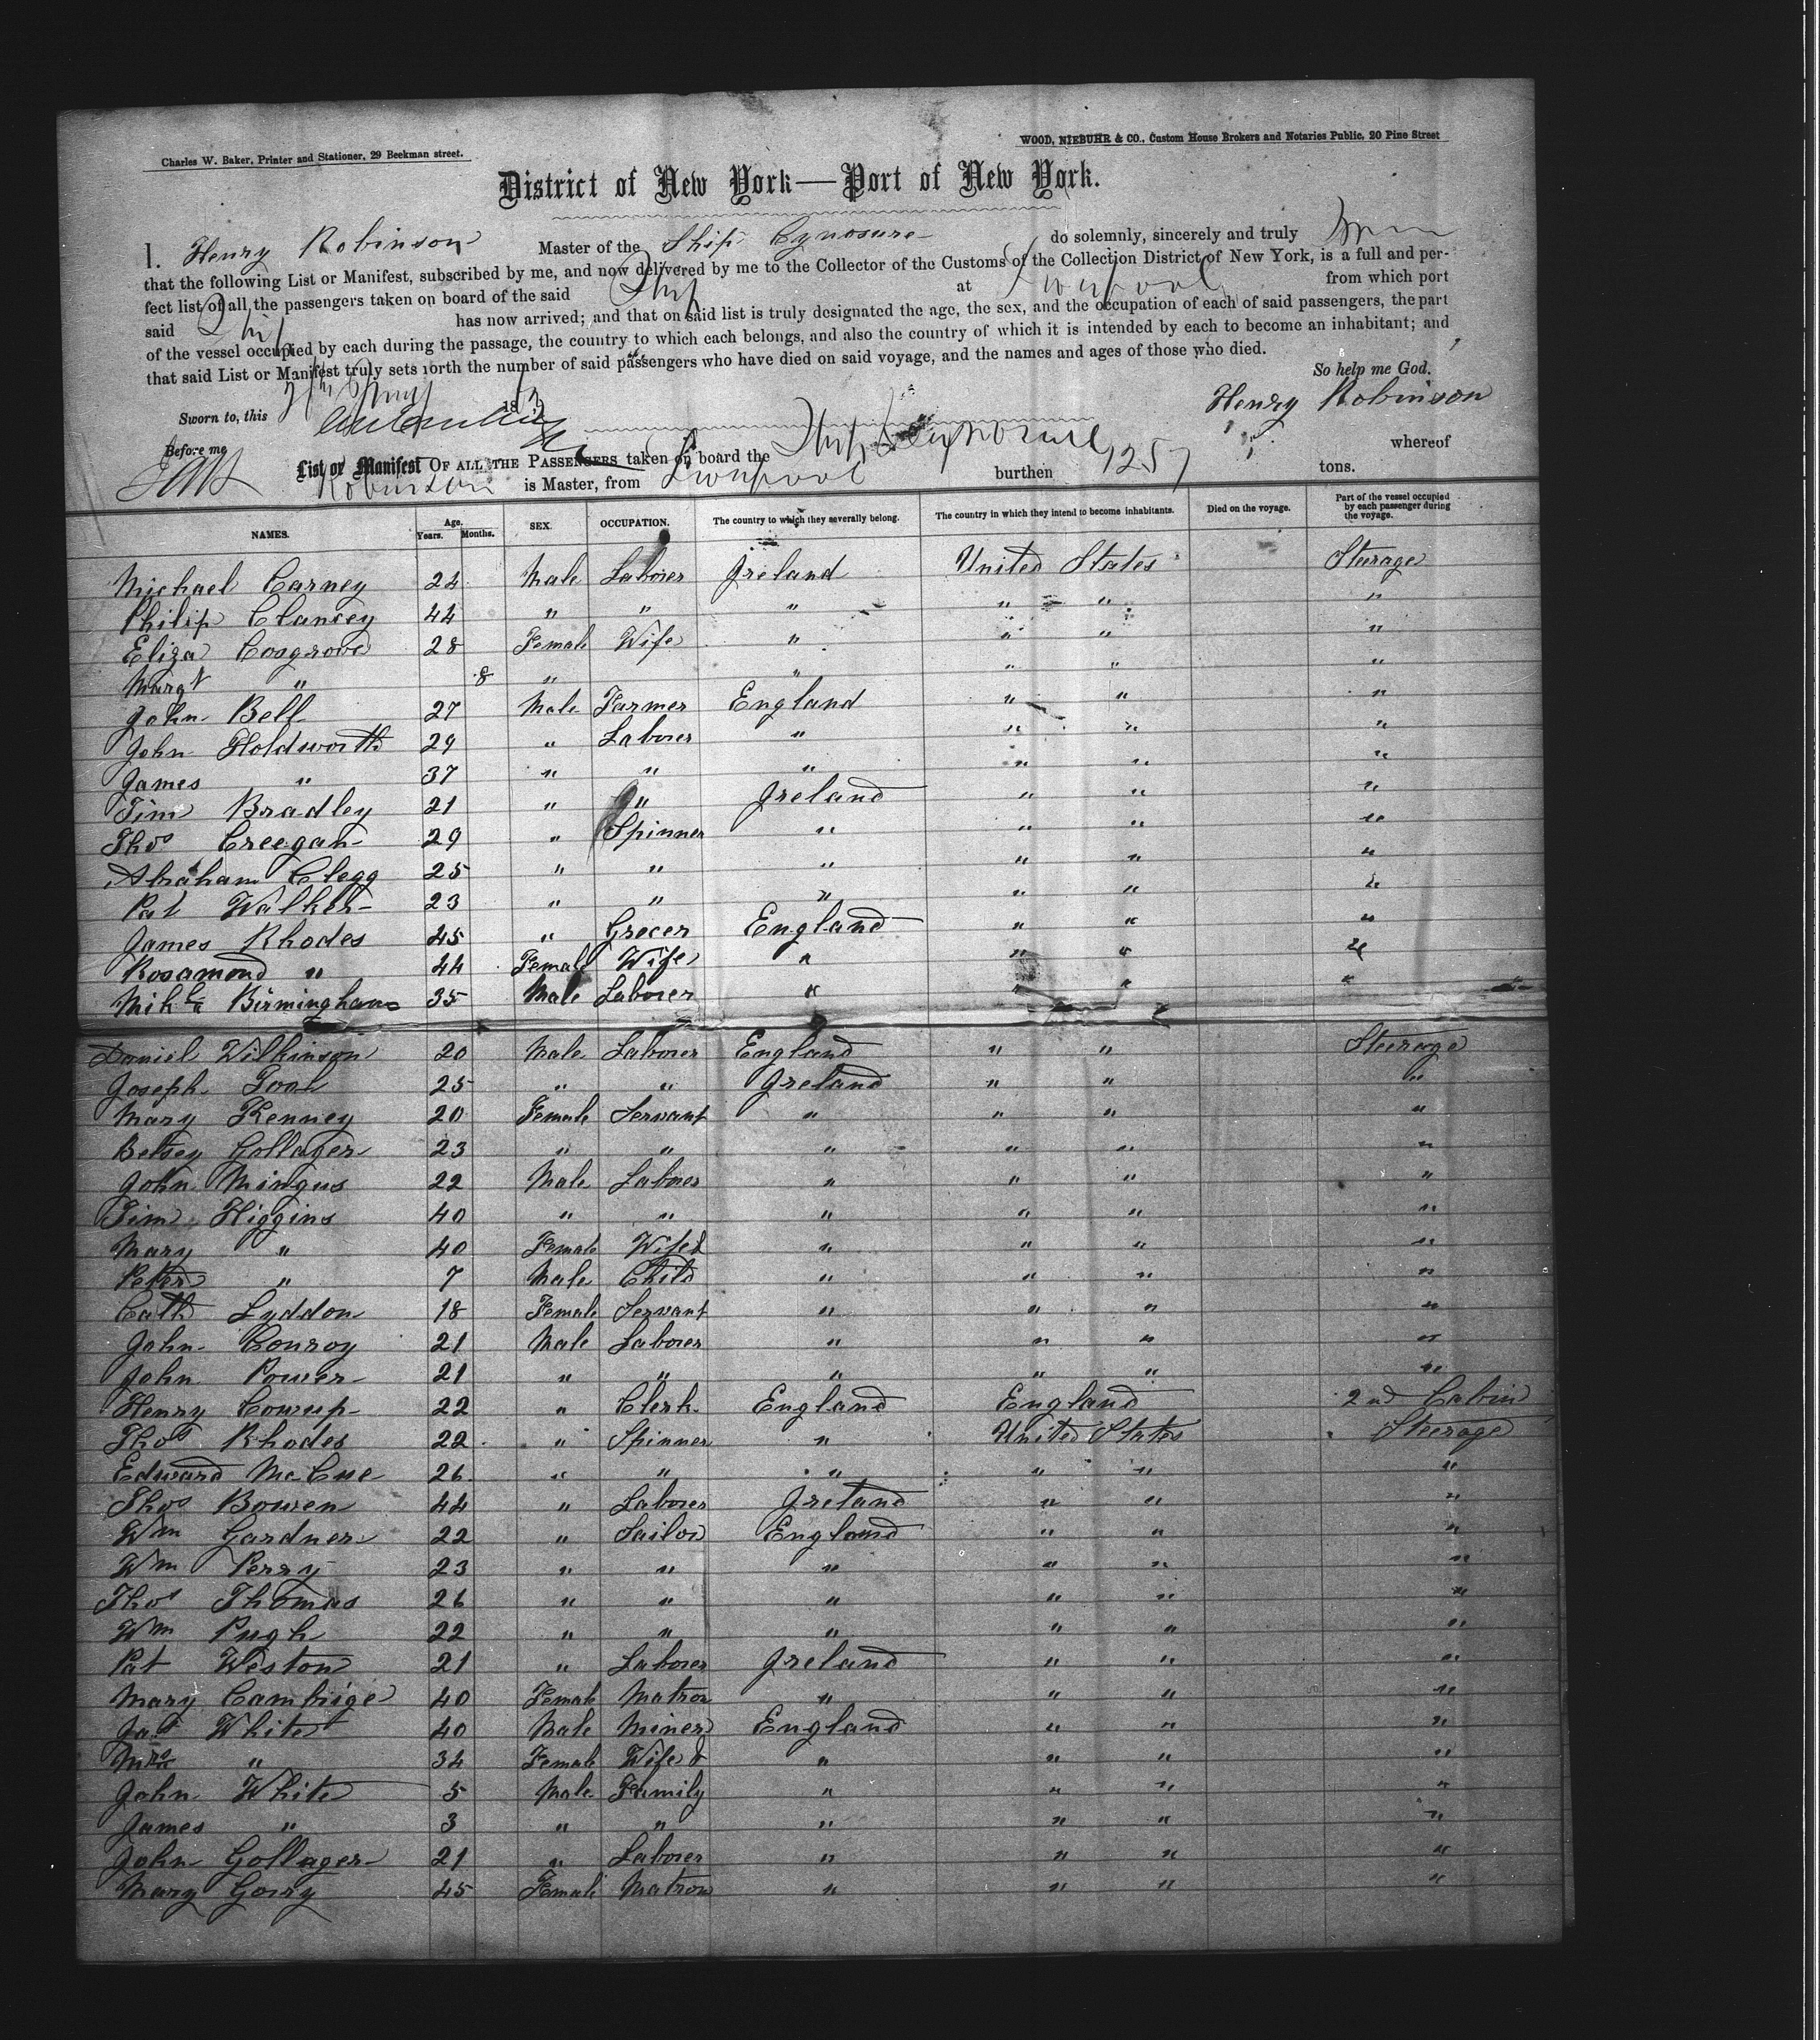 Charles W. Baker, Printer and Stationer, 29 Beekman street.
WOOD, NIEBUHR & CO., Custom House Brokers and Notaries Public, 20 Pine Street
District of New York—Port of New York.
I. Henry Robinson Master of the Ship Cynosure do solemnly, sincerely and truly
that the following List or Manifest, subscribed by me, and now delivered by me to the Collector of the Customs of the Collection District of New York, is a full and per-
fect list of all the passengers taken on board of the said Ship at Liverpool from which port
said Ship has now arrived; and that on said list is truly designated the age, the sex, and the occupation of each of said passengers, the part
of the vessel occupied by each during the passage, the country to which each belongs, and also the country of which it is intended by each to become an inhabitant; and
that said List or Manifest truly sets forth the number of said passengers who have died on said voyage, and the names and ages of those who died.
So help me God.
Sworn to, this 186 Henry Robinson
Before me
List or Manifest OF ALL THE PASSENGERS taken on board the Ship Cynosure whereof
Robinson is Master, from Liverpool burthen 1257 tons.
NAMES. Age. Years. Months. SEX. OCCUPATION. The country to which they severally belong. The country in which they intend to become inhabitants. Died on the voyage. Part of the vessel occupied by each passenger during the voyage.
Michael Carney 24 Male Laborer Ireland United States Steerage
Philip Clancey 44 " " " " " "
Eliza Cosgrove 28 Female Wife " " " "
Margt " 8 " " " " "
John Bell 27 Male Farmer England " " "
John Holdsworth 29 " Laborer " " " "
James " 37 " " " " " "
Tim Bradley 21 " " Ireland " " "
Thos Creegan 29 " Spinner " " " "
Abraham Clegg 25 " " " " " "
Pat Walker 23 " " " " " "
James Rhodes 45 " Grocer England " " "
Rosamond " 44 Female Wife " " " "
Mihl Birmingham 35 Male Laborer " " " "
Daniel Wilkinson 20 Male Laborer England " " Steerage
Joseph 25 " " Ireland " " "
Mary Kenney 20 Female Servant " " " "
Betsey Gollager 23 " " " " " "
John Mingus 22 Male Laborer " " " "
Tim Higgins 40 " " " " " "
Mary " 40 Female Wife & " " " "
Peter " 7 Male Child " " " "
Cath Lyddon 18 Female Servant " " " "
John Conroy 21 Male Laborer " " " "
John Power 21 " " " " " "
Henry Cowup 22 " Clerk England England 2nd Cabin
Thos Rhodes 22 " Spinner " United States Steerage
Edward McCue 26 " " " " " "
Thos Bowen 44 " Laborer Ireland " " "
Wm Gardner 22 " Sailor England " " "
Wm Perry 23 " " " " " "
Thos Thomas 26 " " " " " "
Wm Pugh 22 " " " " " "
Pat Weston 21 " Laborer Ireland " " "
Mary Cambrige 40 Female Matron " " " "
Jas White 40 Male Miner England " " "
Mrs " 34 Female Wife & " " " "
John White 5 Male Family " " " "
James " 3 " " " " " "
John Gollager 21 " Laborer " " " "
Mary Gorry 45 Female Matron " " " "